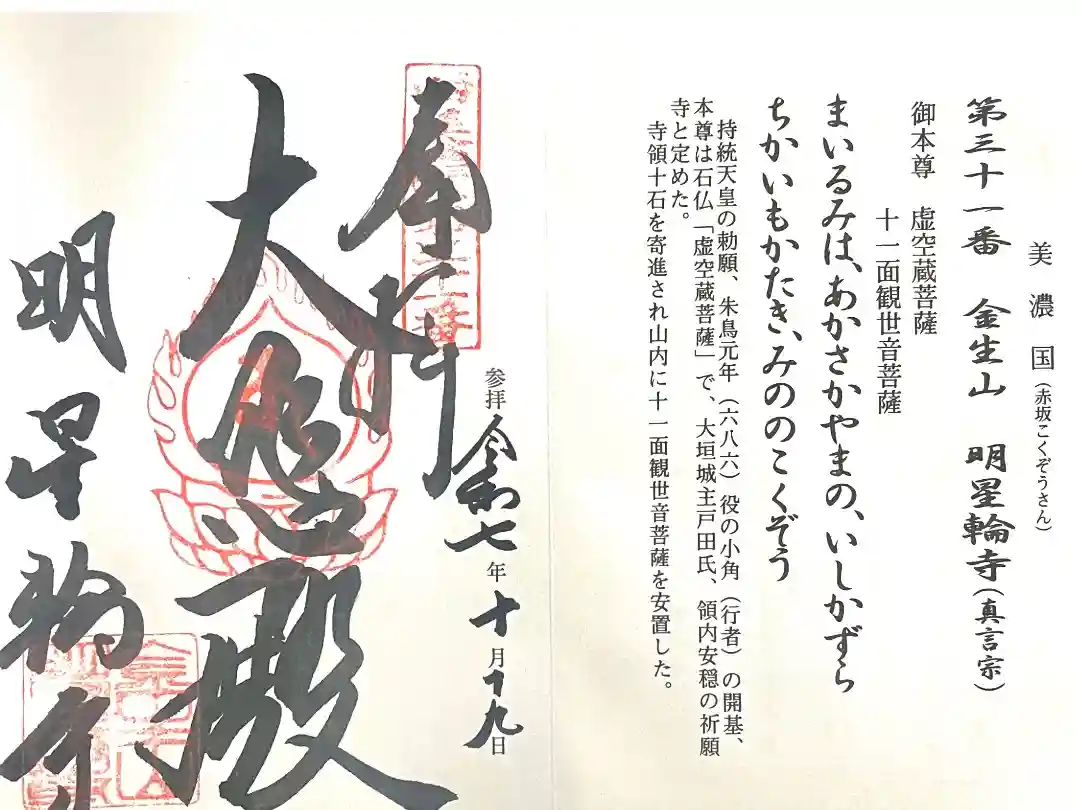 美濃国(赤坂こくぞうさん)
第三十一番 金生山 明星輪寺(真言宗)
御本尊 虚空蔵菩薩
十一面観世音菩薩
まいるみは、あかさかやまの、いしかずら
ちかいもかたき、みののこくぞう
持統天皇の勅願、朱鳥元年(六八六)役の小角(行者)の開基、
本尊は石仏「虚空蔵菩薩」で、大垣城主戸田氏、領内安穏の祈願
寺と定めた。
寺領十石を寄進され山内に十一面観世音菩薩を安置した。
参拝令和七年十月十九日
奉拝
大悲殿
明星輪寺